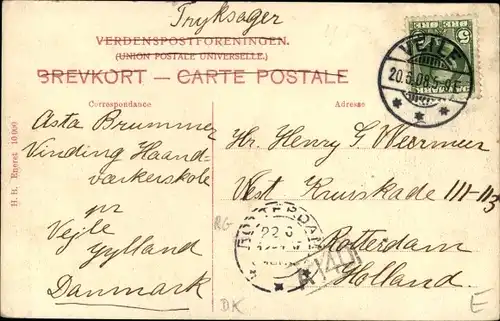 Tryksager
VERDENSPOSTFORENINGEN.
(UNION POSTALE UNIVERSELLE.)
BREVKORT — CARTE POSTALE
5 5
VEJLE
20.6.08.5-6E
Correspondance
Adresse
Asta Brummer
Vinding Haand-
værkerskole
pr
Vejle
Jylland
Danmark
Hr. Henry G Weermeer
West Kruiskade 111-113
Rotterdam
Holland.
ROTTERDAM
22 6
R 1401
RG-
DK
E
H. H. Eneret 10 000